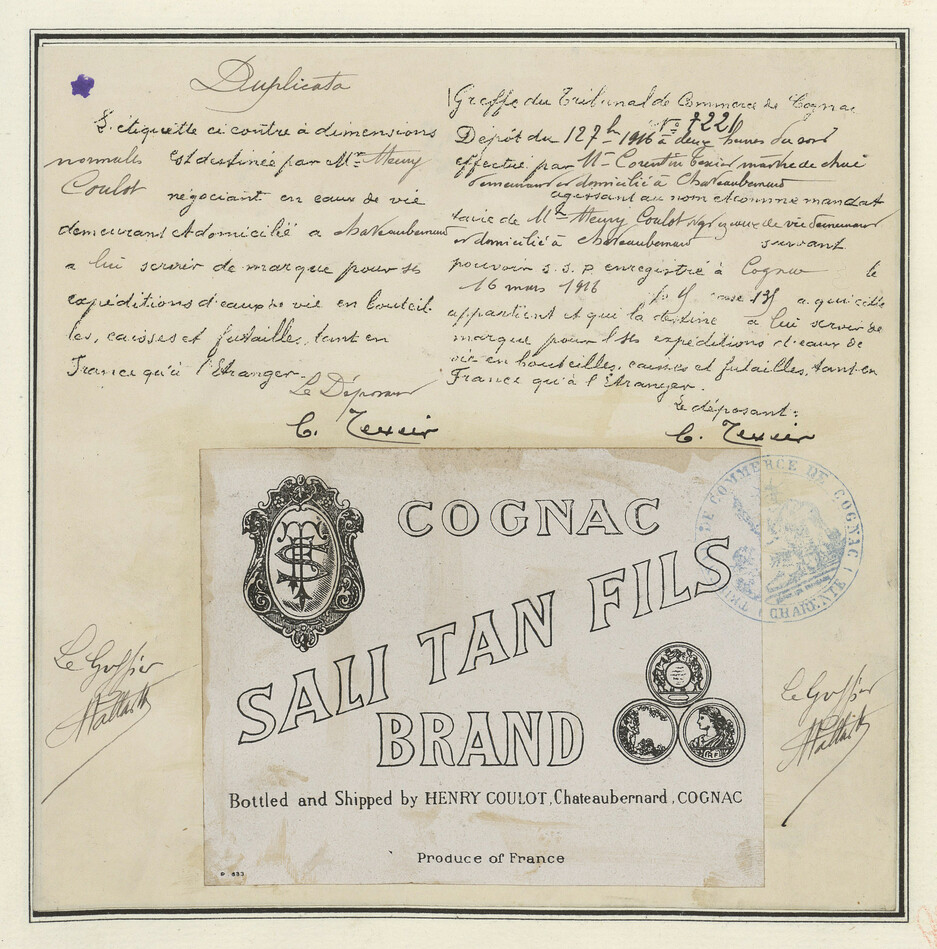 Duplicata
L'étiquette ci contre à dimensions
normales est destinée par Mr Henry
Coulot négociant en eaux de vie
demeurant et domicilié a chateaubernard
a lui servir de marque pour ses
expéditions d'eaux de vie en bouteil-
les, caisses et futailles, tant en
France qu'à l'Etranger.
Le Déposant
C. Texier
Greffe du Tribunal de Commerce de Cognac
Dépôt du 1916 à deux heures du soir
effectué par Mr Corentin Texier
demeurant et domicilié à Chateaubernard
agissant au nom et comme mandat
taire de Mr Henry Coulot eaux de vie demeurant
et domicilié à chateaubernard suivant
pouvoir S.S.P. enregistré à Cognac le
16 mars 1916 case 135 a qui cette
appartient et qui la destine a lui servir de
marque pour ses expéditions d'eaux de
vie en bouteilles, caisses et futailles, tant en
France qu'à l'Etranger.
Le déposant:
C. Texier
TRIB. DE COMMERCE DE COGNAC
CHARENTE
COGNAC
SALI TAN FILS
BRAND
Bottled and Shipped by HENRY COULOT, Chateaubernard, COGNAC
Produce of France
Le Greffier
Le Greffier